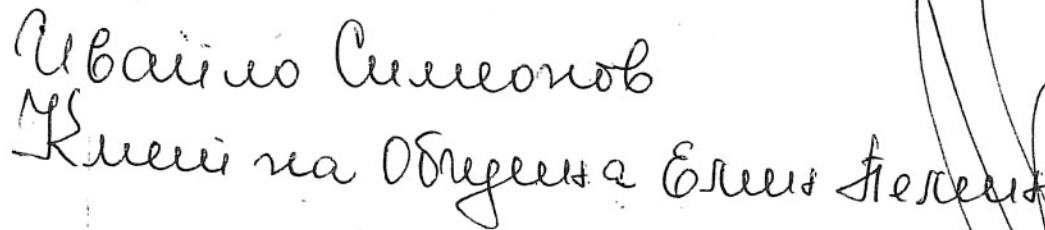 Ивайло Симеонов
Кмет на Община Елин Пелин